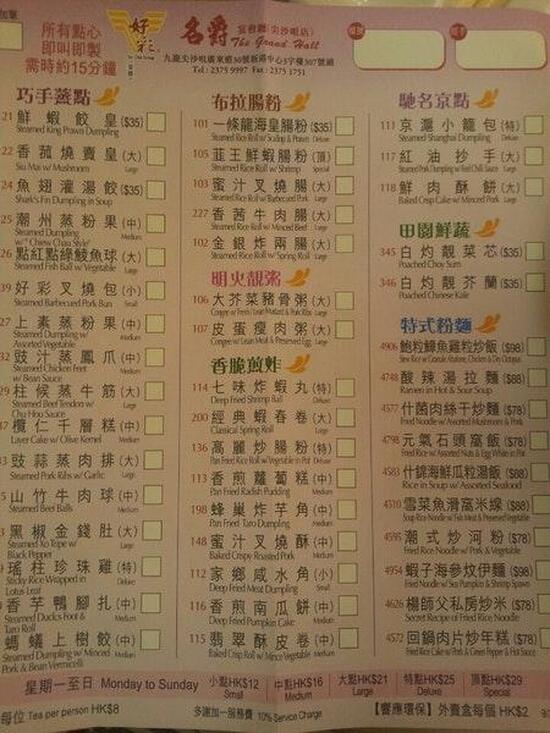 所有點心
即叫即製
需時約15分鐘
好彩
名爵 宴會廳(尖沙咀店)
The Grand Hall
九龍尖沙咀廣東道30號新港中心3字樓307號舖
Tel: 2375 9997 Fax: 2375 1751
巧手蒸點
21 鮮蝦餃皇($35)
Steamed King Prawn Dumpling
22 香菰燒賣皇(大)
Siu Mai w/ Mushroom Large
24 魚翅灌湯餃($35)
Shark's Fin Dumpling in Soup
25 潮州蒸粉果(中)
Steamed Dumpling Medium
w/ "Chiew Chau Style"
26 點紅點綠鯪魚球(大)
Steamed Fish Ball w/ Vegetable Large
39 好彩叉燒包(小)
Steamed Barbecued Pork Bun Small
27 上素蒸粉果(中)
Steamed Dumpling w/ Medium
Assorted Vegetable
32 豉汁蒸鳳爪(中)
Steamed Chicken Feet Medium
w/ Bean Sauce
29 柱候蒸牛筋(大)
Steamed Beef Tendon w/ Large
Chu Hou Sauce
37 欖仁千層糕(中)
Layer Cake w/ Olive Kernel Medium
33 豉蒜蒸肉排(大)
Steamed Pork Ribs w/ Garlic Large
山竹牛肉球(中)
Steamed Beef Balls Medium
黑椒金錢肚(大)
Steamed Ox Tripe w/ Large
Black Pepper
瑤柱珍珠雞(特)
Sticky Rice Wrapped in Deluxe
Lotus Leaf
香芋鴨腳扎(中)
Steamed Duck's Foot & Medium
Taro Roll
螞蟻上樹餃(中)
Steamed Dumpling w/ Minced Medium
Pork & Bean Vermicelli
布拉腸粉
101 一條龍海皇腸粉($35)
Steamed Rice Roll w/ Scallop & Prawn Deluxe
105 韮王鮮蝦腸粉(頂)
Steamed Rice Roll w/ Shrimp Special
103 蜜汁叉燒腸(大)
Steamed Rice Roll w/ Barbecued Pork Large
227 香茜牛肉腸(大)
Steamed Rice Roll w/ Minced Beef Large
102 金銀炸兩腸(大)
Steamed Rice Roll w/ Large
明火靚粥
106 大芥菜豬骨粥(大)
Congee w/ Fresh / Lean Mustard & Pork Ribs Large
107 皮蛋瘦肉粥(大)
Congee w/ Lean Meat & Preserved Egg Large
香脆煎炸
114 七味炸蝦丸(特)
Deep Fried Shrimp Ball Deluxe
200 經典蝦春卷(大)
Classical Spring Roll Large
136 高麗炒腸粉(特)
Pan Fried Rice Roll w/ Vegetable in Pot Deluxe
113 香煎蘿蔔糕(中)
Pan Fried Radish Pudding Medium
198 蜂巢炸芋角(中)
Pan Fried Taro Dumpling Medium
148 蜜汁叉燒酥(中)
Baked Crispy Roasted Pork Medium
112 家鄉咸水角(小)
Deep Fried Meat Dumpling Small
116 香煎南瓜餅(中)
Deep Fried Pumpkin Cake Medium
115 翡翠酥皮卷(中)
Baked Crisp Roll w/ Mince Vegetable Medium
馳名京點
111 京滬小籠包(特)
Steamed Shanghai Dumpling Deluxe
117 紅油抄手(大)
Steamed Pork Dumpling w/ Chili Sauce Large
118 鮮肉酥餅(大)
Baked Crisp Cake w/ Minced Pork Large
田園鮮蔬
345 白灼靚菜芯($35)
Poached Choy Sum
346 白灼靚芥蘭($35)
Poached Chinese Kale
特式粉麵
4906 鮑粒鱆魚雞粒炒飯($98)
4748 酸辣湯拉麵($88)
Ramen in Hot & Sour Soup
4577 什菌肉絲干炒麵($78)
Fried Noodle w/ Assorted Mushroom & Pork
4798 元氣石頭窩飯($78)
Fried Rice w/ Assorted Nuts & Egg White in Pot
4583 什錦海鮮瓜粒湯飯($88)
Rice in Soup w/ Assorted Seafood
4510 雪菜魚滑窩米線($88)
Soup Rice Noodle w/ Fish Meat & Preserved Vegetable
4595 潮式炒河粉($78)
Fried Rice Noodle w/ Pork & Vegetable
4954 蝦子海參炆伊麵($98)
Fried Noodle w/ Sea Pumpkin & Shrimp Spawn
4626 楊師父私房炒米($78)
Secret Recipe of Fried Rice Noodle
4572 回鍋肉片炒年糕($78)
Fried Rice Cake w/ Pork & Green Pepper & Hot Sauce
星期一至日 Monday to Sunday 小點HK$12 中點HK$16 大點HK$21 特點HK$25 頂點HK$29
Small Medium Large Deluxe Special
每位 Tea per person HK$8 多謝加一服務費 10% Service Charge 【響應環保】外賣盒每個 HK$2